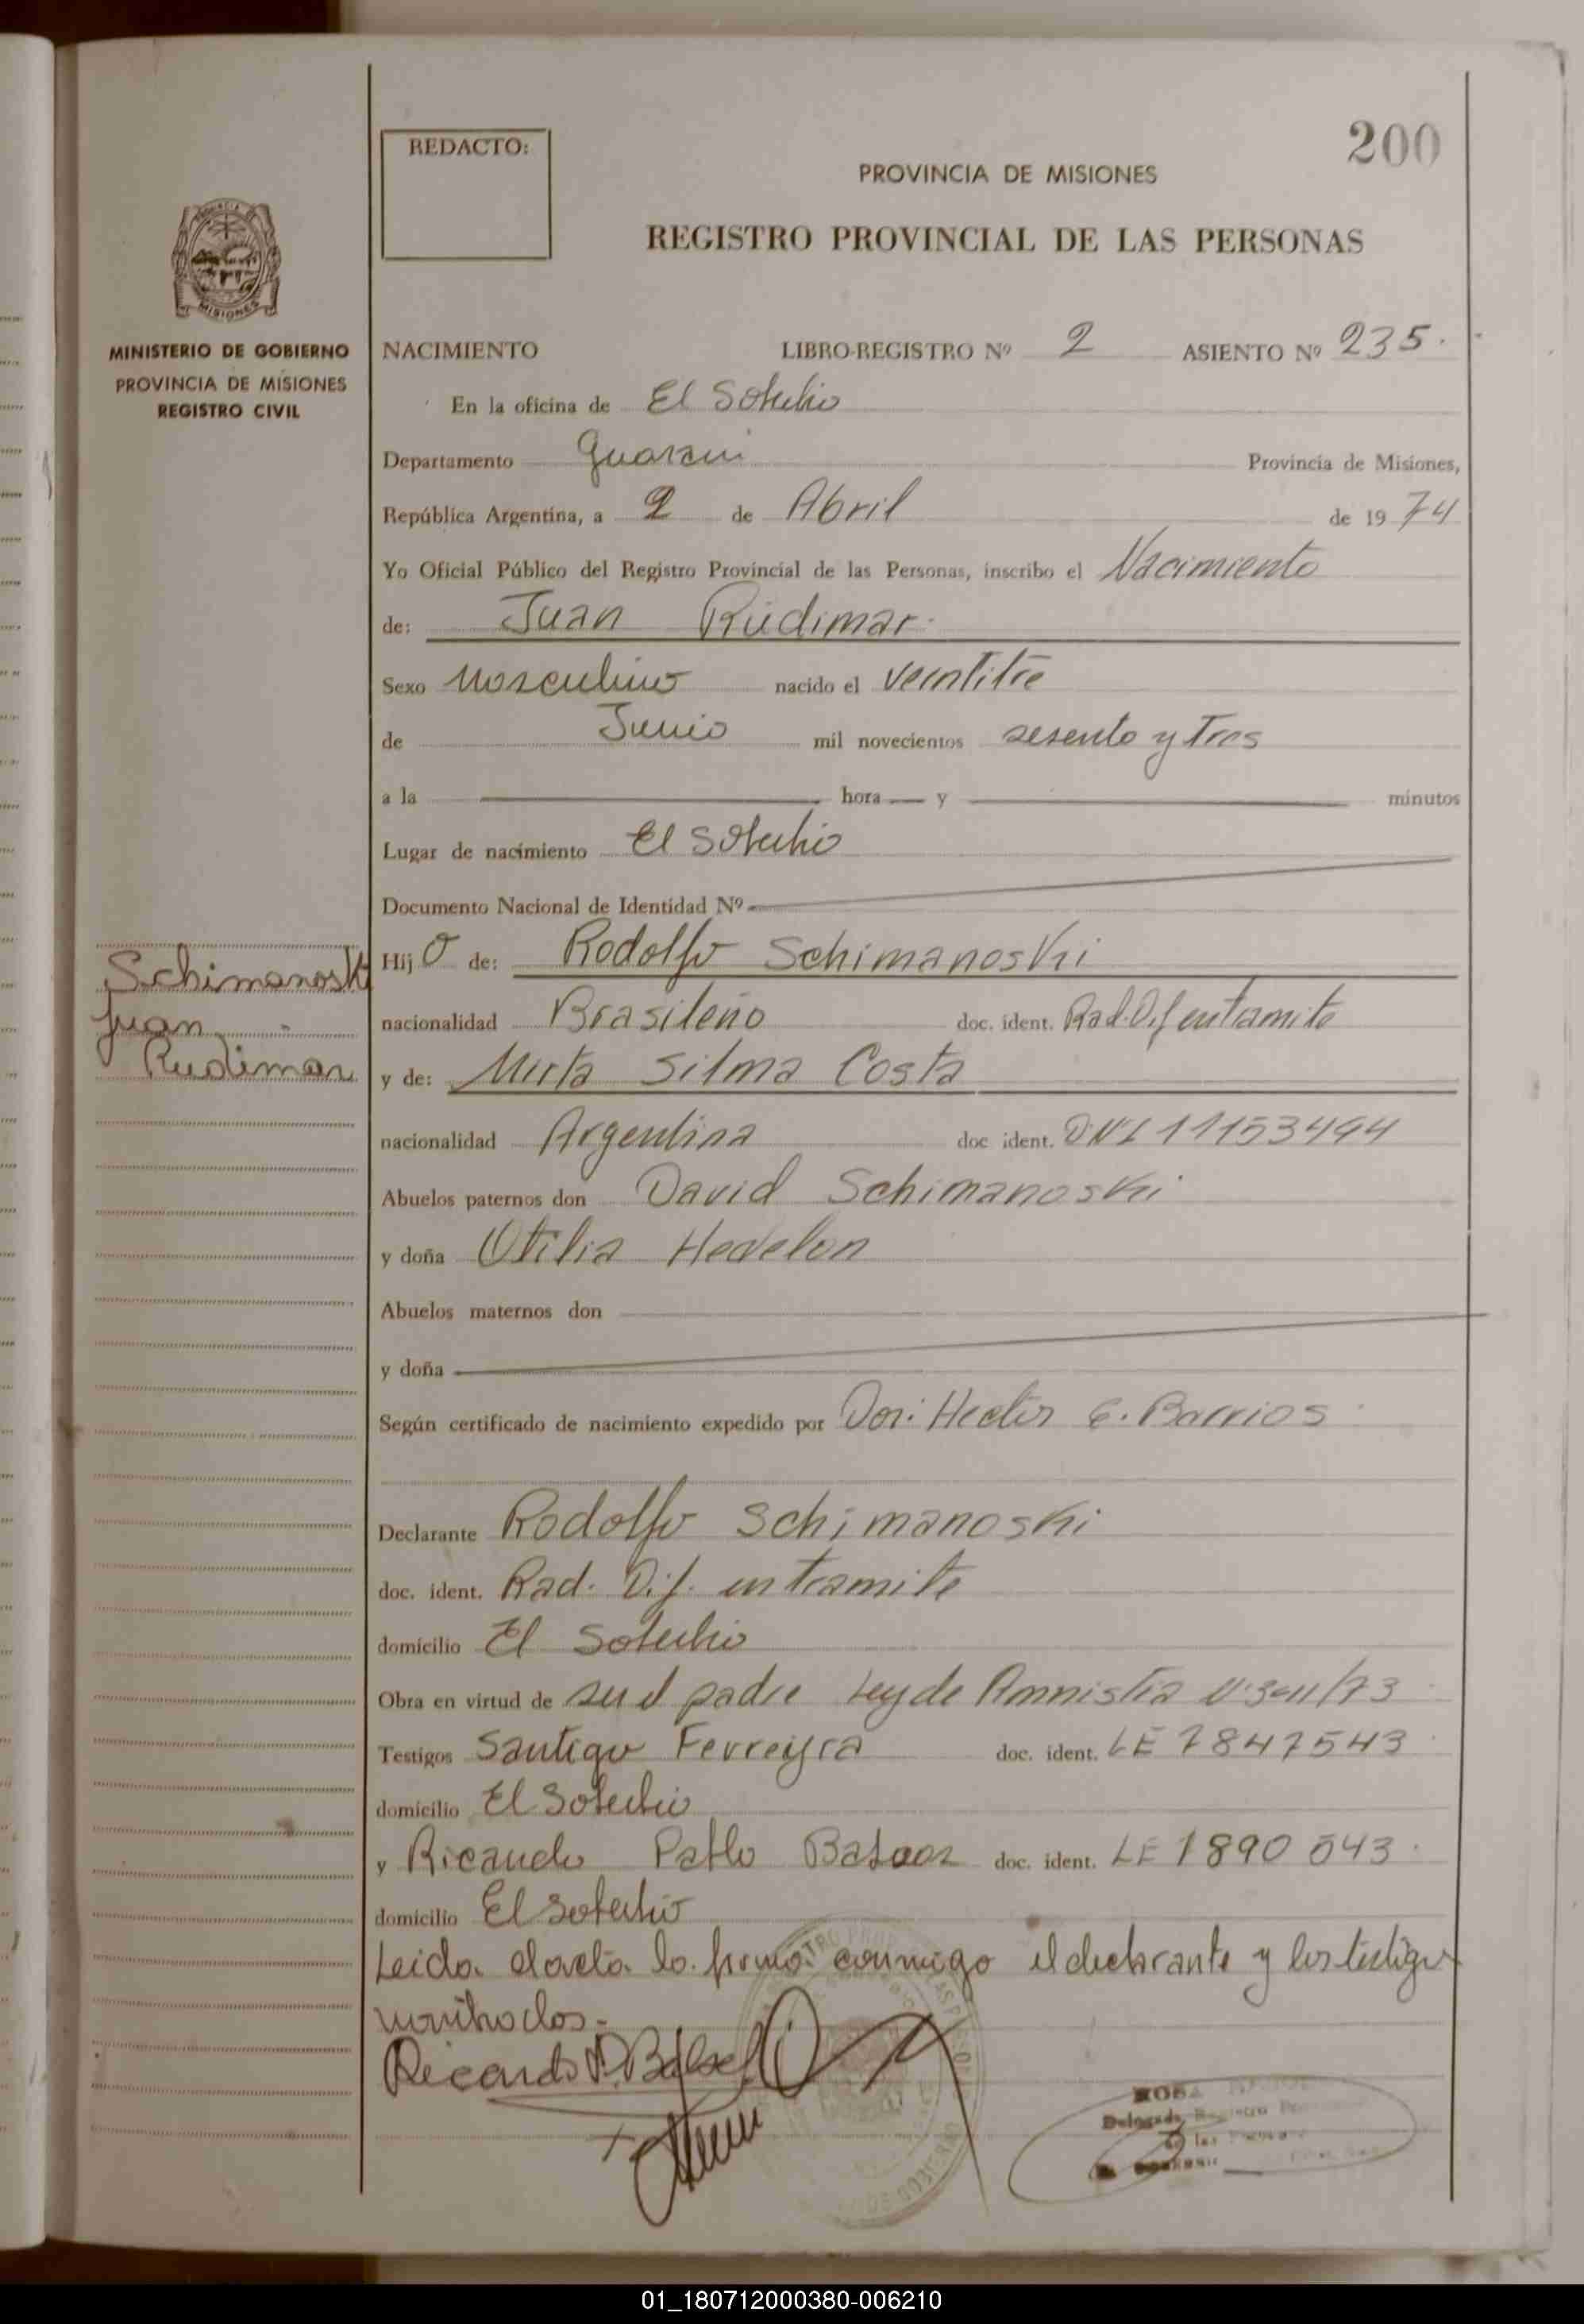 200
REDACTO:
PROVINCIA DE MISIONES
REGISTRO PROVINCIAL DE LAS PERSONAS
MINISTERIO DE GOBIERNO
PROVINCIA DE MISIONES
REGISTRO CIVIL
NACIMIENTO LIBRO-REGISTRO Nº 2 ASIENTO Nº 235.
En la oficina de El Soberbio
Departamento Guarani Provincia de Misiones,
República Argentina, a 2 de Abril de 1974
Yo Oficial Público del Registro Provincial de las Personas, inscribo el Nacimiento
de: Juan Rudimar.
Sexo Masculino nacido el veintitre
de Junio mil novecientos sesenta y Tres
a la hora y minutos
Lugar de nacimiento El Soberbio
Documento Nacional de Identidad Nº
Schimanoski
Juan
Rudimar
Hijo de: Rodolfo Schimanoski
nacionalidad Brasileño doc. ident. Rad. Dif en tramite
y de: Mirta Silma Costa
nacionalidad Argentina doc ident. DNI 11153494
Abuelos paternos don David Schimanoski
y doña Otilia Hedelon
Abuelos maternos don
y doña
Según certificado de nacimiento expedido por Hector E. Barrios
Declarante Rodolfo Schimanoski
doc. ident. Rad. Dif. en tramite
domicilio El Soberbio
Obra en virtud de ser el padre Ley de Amnistia
Testigos Santiago Ferreyra doc. ident. LE 7847543
domicilio El Soberbio
y Ricardo Pablo doc. ident. LE 1890543
domicilio El Soberbio
Leida el acta la firma conmigo el declarante y los testigos
nombrados.-
Ricardo P.
01_180712000380-006210